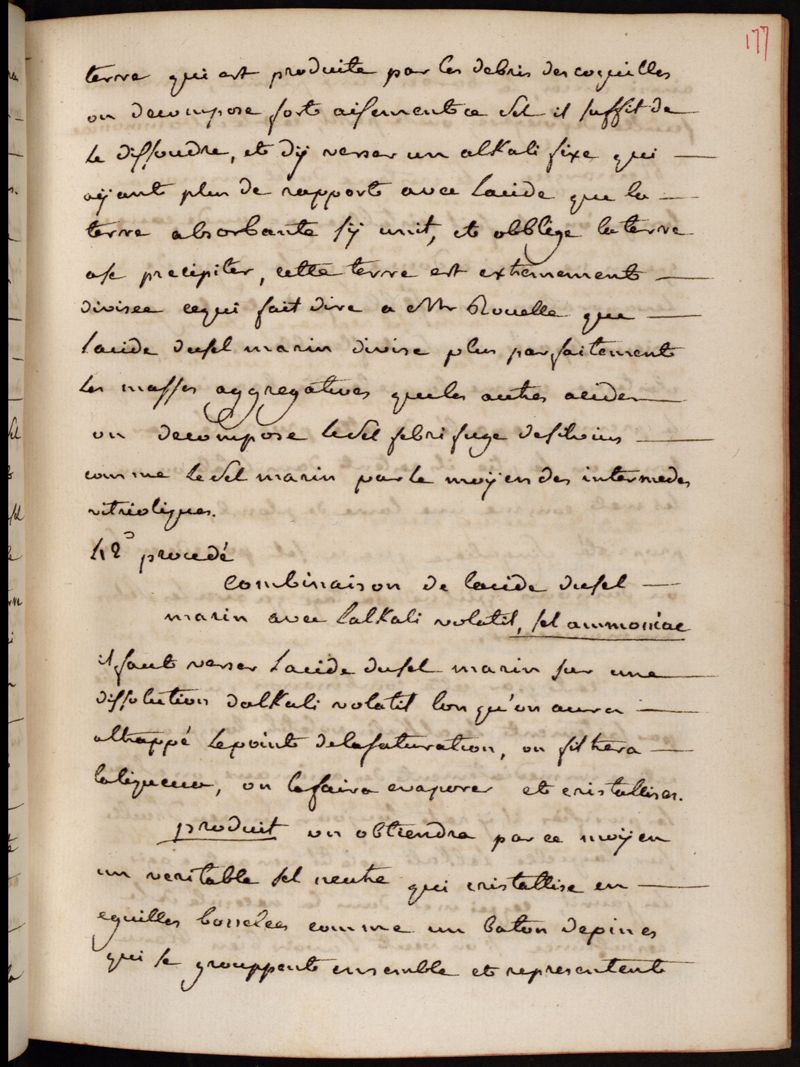 177
terre qui est produite par les debris des coquilles
on decompose fort aisement ce sel il suffit de
le dissoudre, et d'ÿ verser un alkali fixe qui
aÿant plus de rapport avec lacide que la
terre absorbante s'ÿ unit, et obblege la terre
a se precipiter, cette terre est extremement
divisee cequi fait dire a Mr Rouelle que
lacide dusel marin divise plus parfaitement
les masses aggregatives queles autres acides
on decompose lesel febrifuge desilvius
comme lesel marin parle moÿen des intermedes
vitrioliques.
42e procedé
Combinaison de lacide dusel
marin avec lalkali volatil, sel ammoniac
il faut verser lacide dusel marin sur une
dissolution dalkali volatil lorsqu'on aura
attrappé lepoint delasaturation, on filtrera
laliqueur, on lafaira evaporer et cristalliser.
produit on obtiendra par ce moÿen
un veritable sel neutre qui cristallise en
eguilles bosselées comme un baton depines
qui se grouppent ensemble et representent